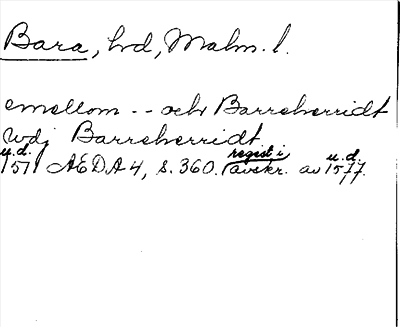 Bara, hd, Malm. l.
emellom -- och Barreherridt
wdj Barreherridt.
u.d. regest i u.d.
1571 AEDA 4, s. 360. (avskr. av 1577.